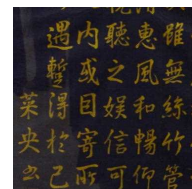 雖無絲竹管
惠風和暢仰
聽之娛信可
內或因寄所
遇暫得於己